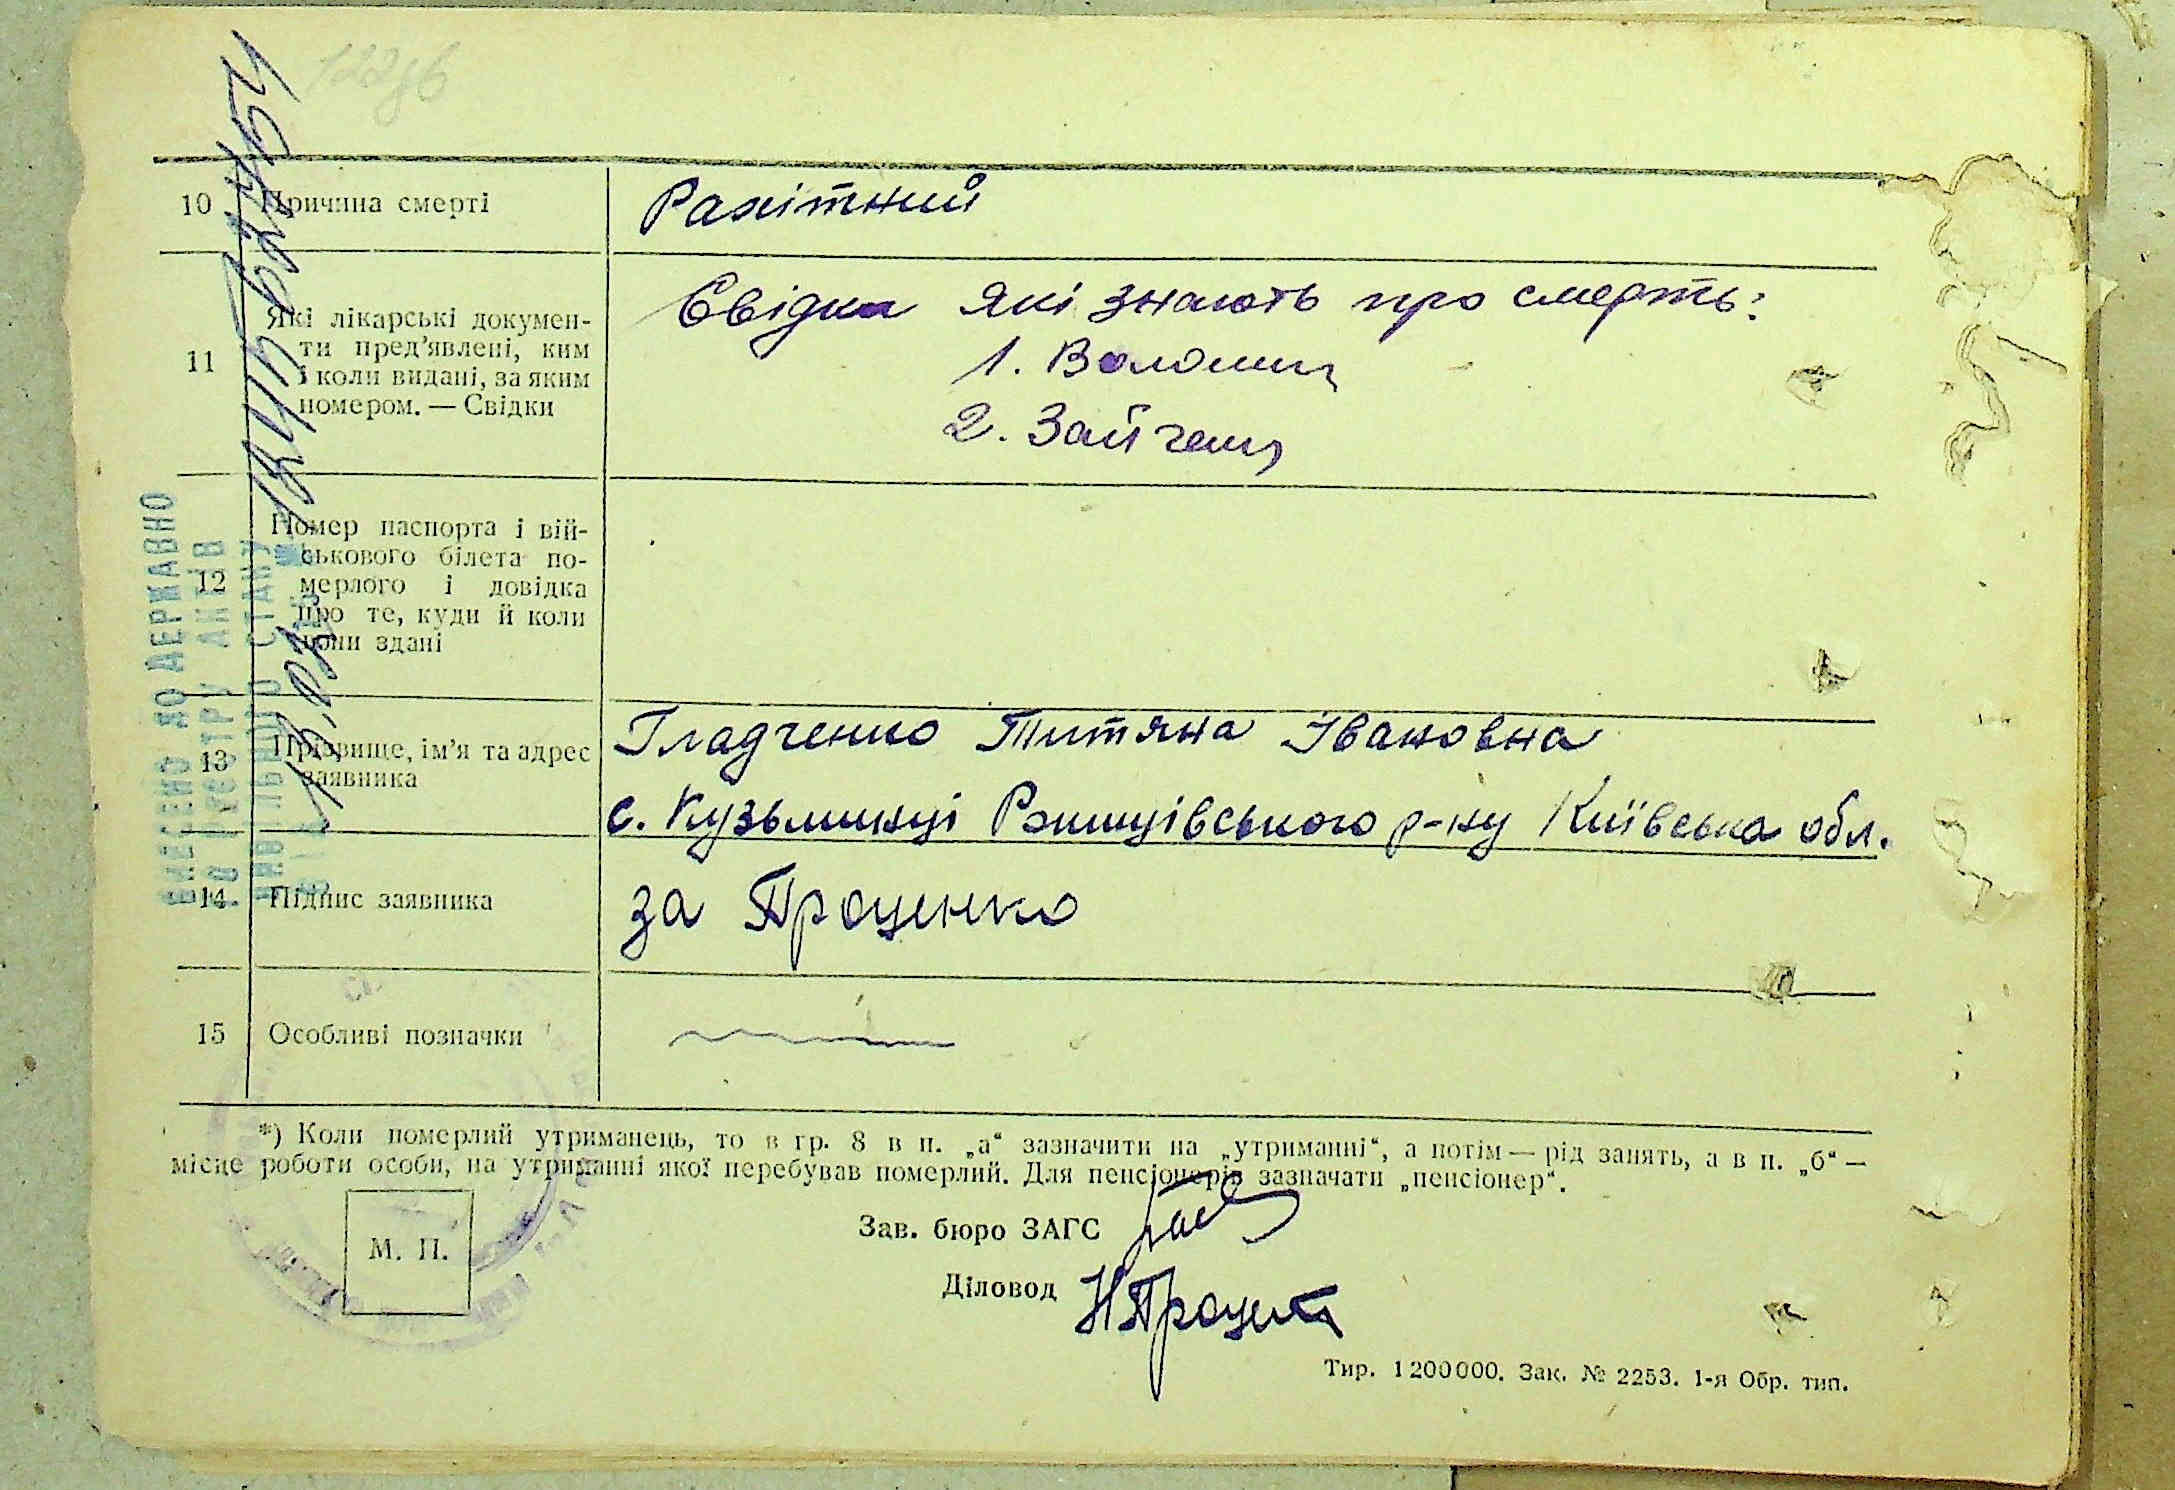 10 Причина смерті Рахітний
11 Які лікарські докумен-
ти пред’явлені, ким
і коли видані, за яким
номером. — Свідки
Свідки які знають про смерть:
1. Волошин
2. Зайченко
12 Номер паспорта і вій-
ськового білета по-
мерлого і довідка
про те, куди й коли
вони здані
13 Прізвище, ім’я та адрес
заявника
Гладченко Титяна Івановна
с. Кузьминці Ракитнівського р-ну Київська обл.
14. Підпис заявника за Проценко
15 Особливі позначки
*) Коли померлий утриманець, то в гр. 8 в п. „а“ зазначити на „утриманні“, а потім — рід занять, а в п. „б“ —
місце роботи особи, на утриманні якої перебував померлий. Для пенсіонерів зазначати „пенсіонер“.
М. П.
Зав. бюро ЗАГС
Діловод НПроценко
Тир. 1 200 000. Зак. № 2253. 1-я Обр. тип.
ВНЕСЕНО ДО ДЕРЖАВНО
ГО РЕЄСТРУ АКТІВ
ЦИВІЛЬНОГО СТАНУ